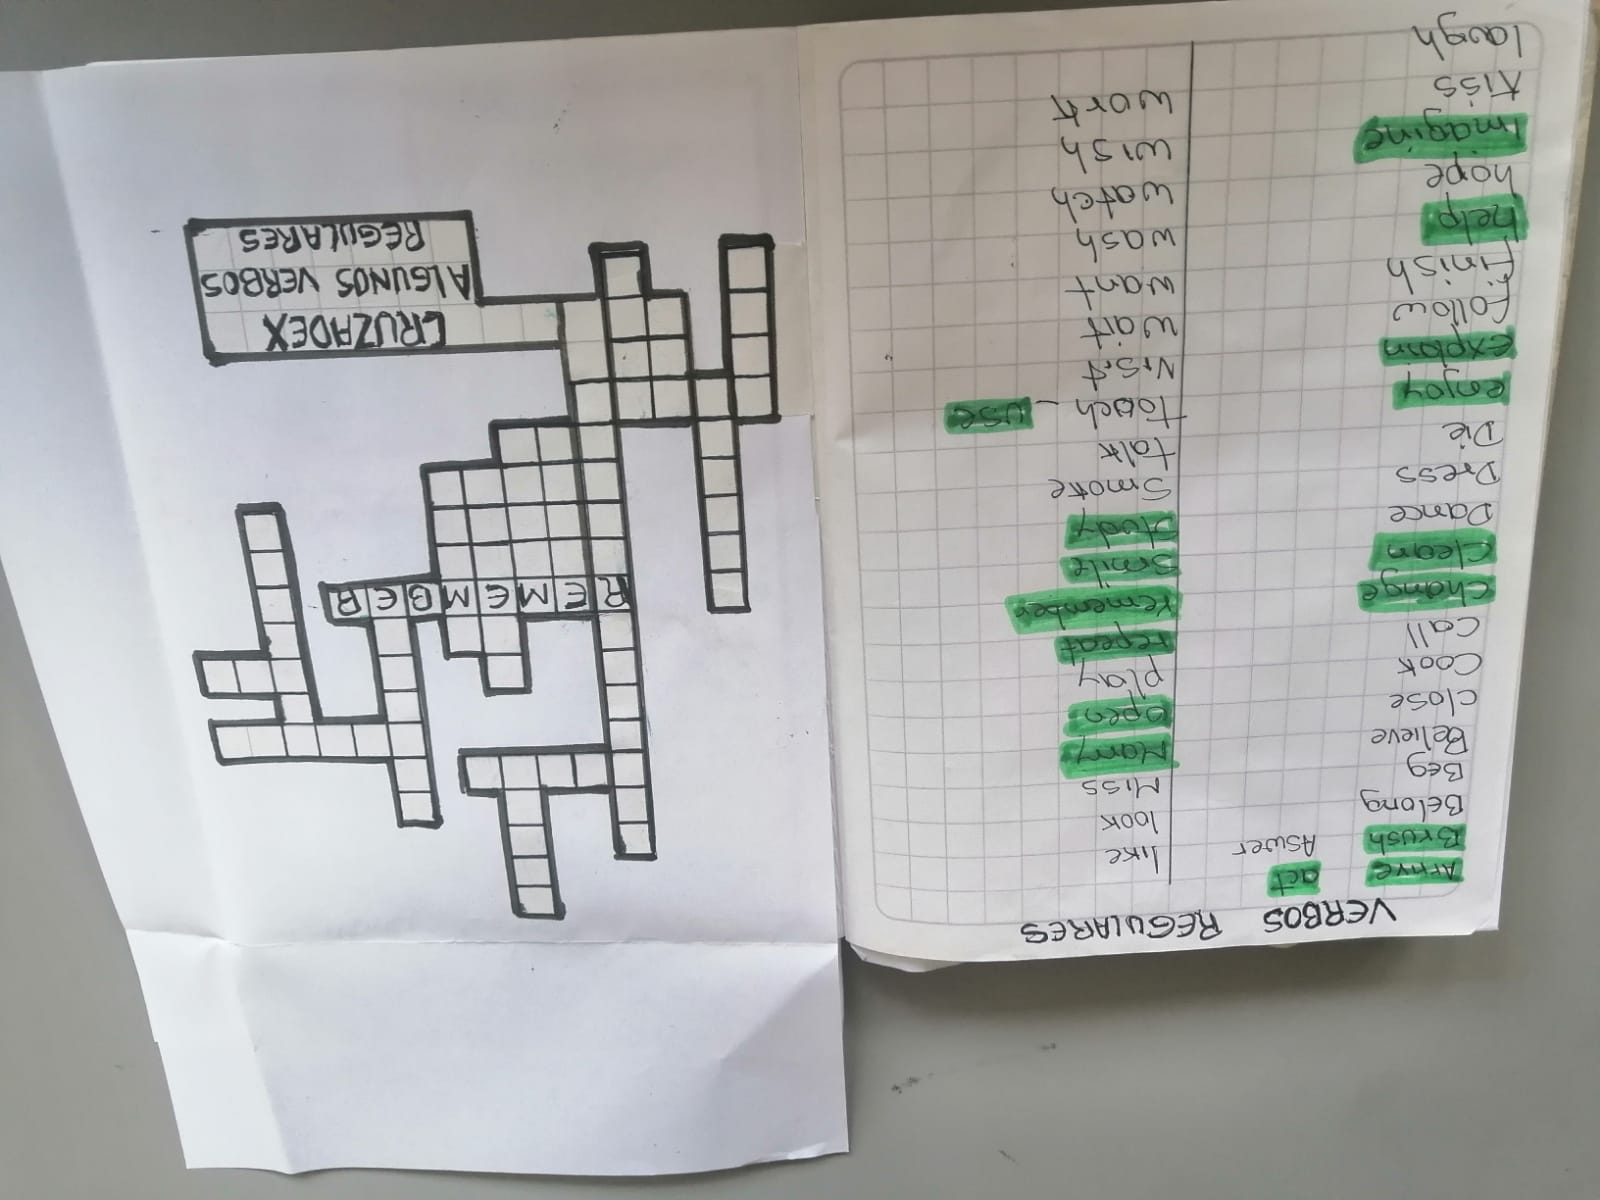 VERBOS REGULARES
Arrive act
Brush Aswer
Belong
Beg
Believe
close
cook
call
change
clean
Dance
Dress
Die
enjoy
explain
follow
finish
help
hope
Imagine
kiss
laugh
like
look
Miss
Marry
open
play
repeat
remember
Smile
Study
Smoke
talk
touch - use
Visit
wait
want
wash
watch
wish
work
REMEMBER
CRUZADEX
ALGUNOS VERBOS
REGULARES